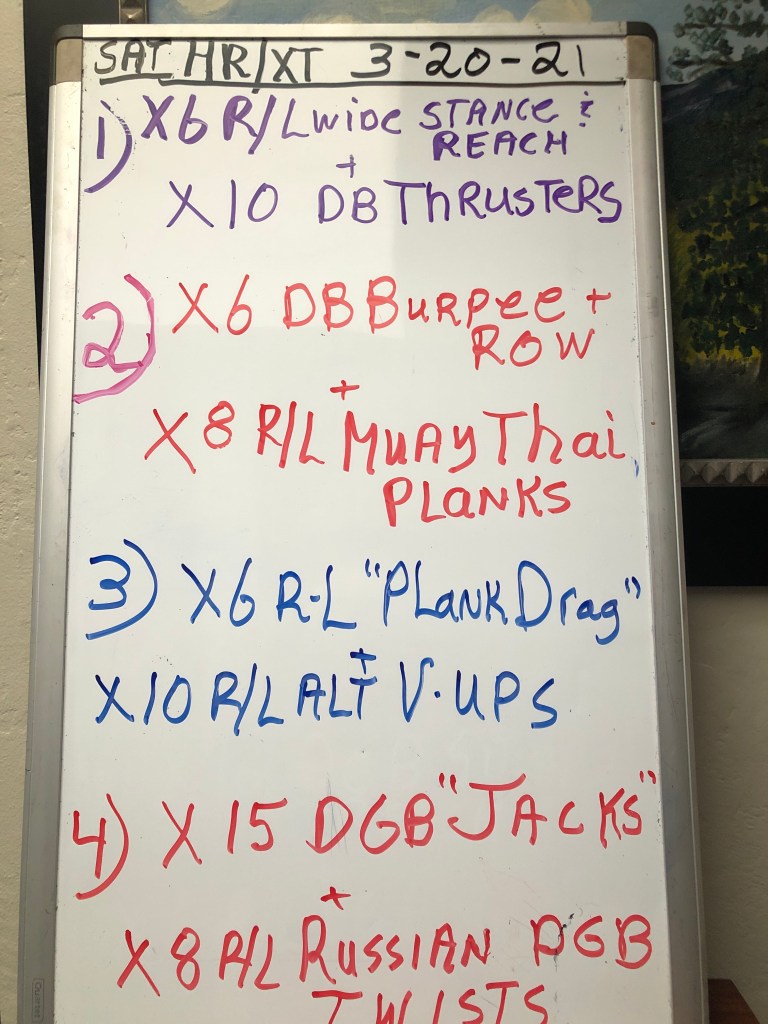 SAT HR/XT 3-20-21
1) X6 R/L WIDE STANCE &
REACH
+
X10 DB THRUSTERS
2) X6 DB BURPEE +
ROW
+
X8 R/L MUAY Thai
PLANKS
3) X6 R-L "PLANK Drag"
+
X10 R/L ALT V-UPS
4) X 15 DGB "JACKS"
+
X8 R/L RUSSIAN DGB
TWISTS
Quartet